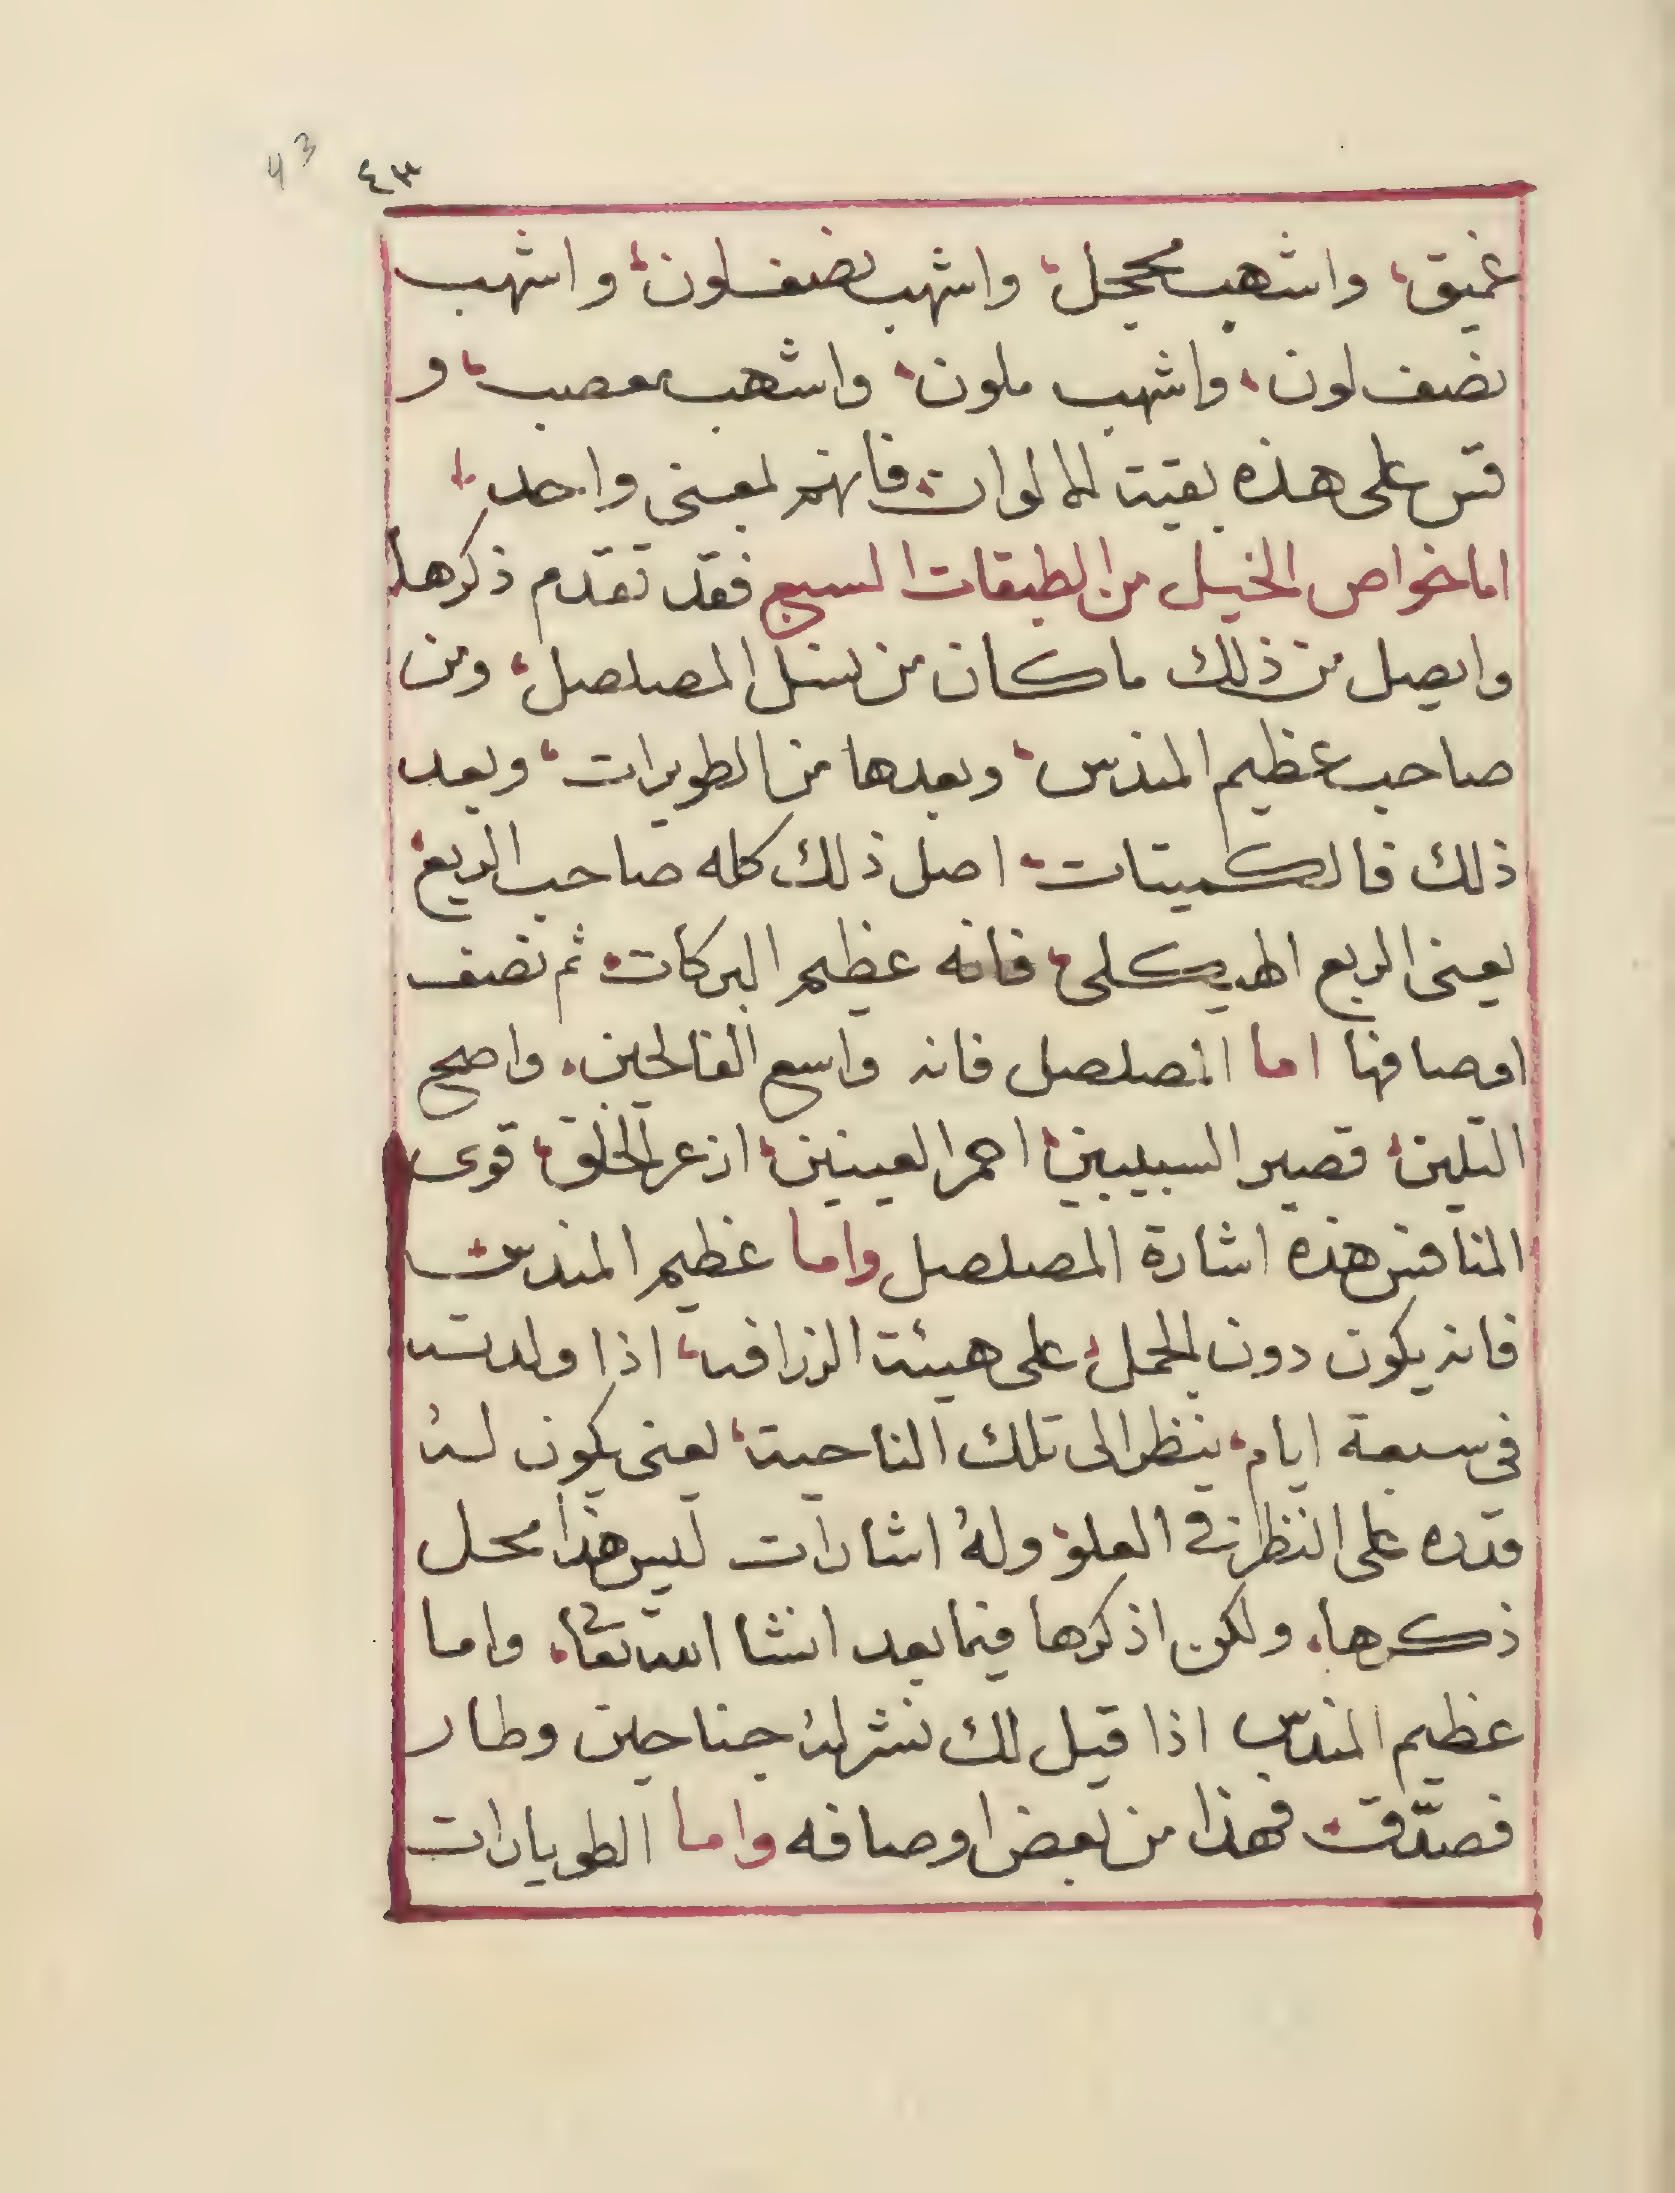 43 ٤٣
غميق، واشهب محجل، واشهب نصف لون، واشهب
نصف لون، واشهب ملون، واشهب معصب، و
قس على هذه بقيت الالوان فانهم بمعنى واحد
اما خواص الخيل من الطبقات السبع فقد تقدم ذكرها
وايصل من ذلك ما كان من نسل المصلصل، ومن
صاحب عظيم المندس، وبعدها من الطويرات، وبعد
ذلك فالكميتات، اصل ذلك كله صاحب الربع
يعني الربع الهيكلي، فانه عظيم البركات، ثم نصف
اوصافها اما المصلصل فانه واسع الفالحين، واضح
التلين، قصير السبيبين، احمر العينين، ازعر الخلق، قوى
المنافس هذه اشارة المصلصل واما عظيم المندس
فانه يكون دون الجمل، على هيئة الزرافه، اذا ولدت
في سبعة ايام، ينظر الى تلك الناحية، يعني يكون له
قدره على النظر في العلو، وله اشارات ليس هذا محل
ذكرها، ولكن اذكرها فيما بعد انشا الله تعا، واما
عظيم المندس اذا قيل لك نشر له جناحين وطار
فصدّقت فهذا من بعض اوصافه واما الطويارات